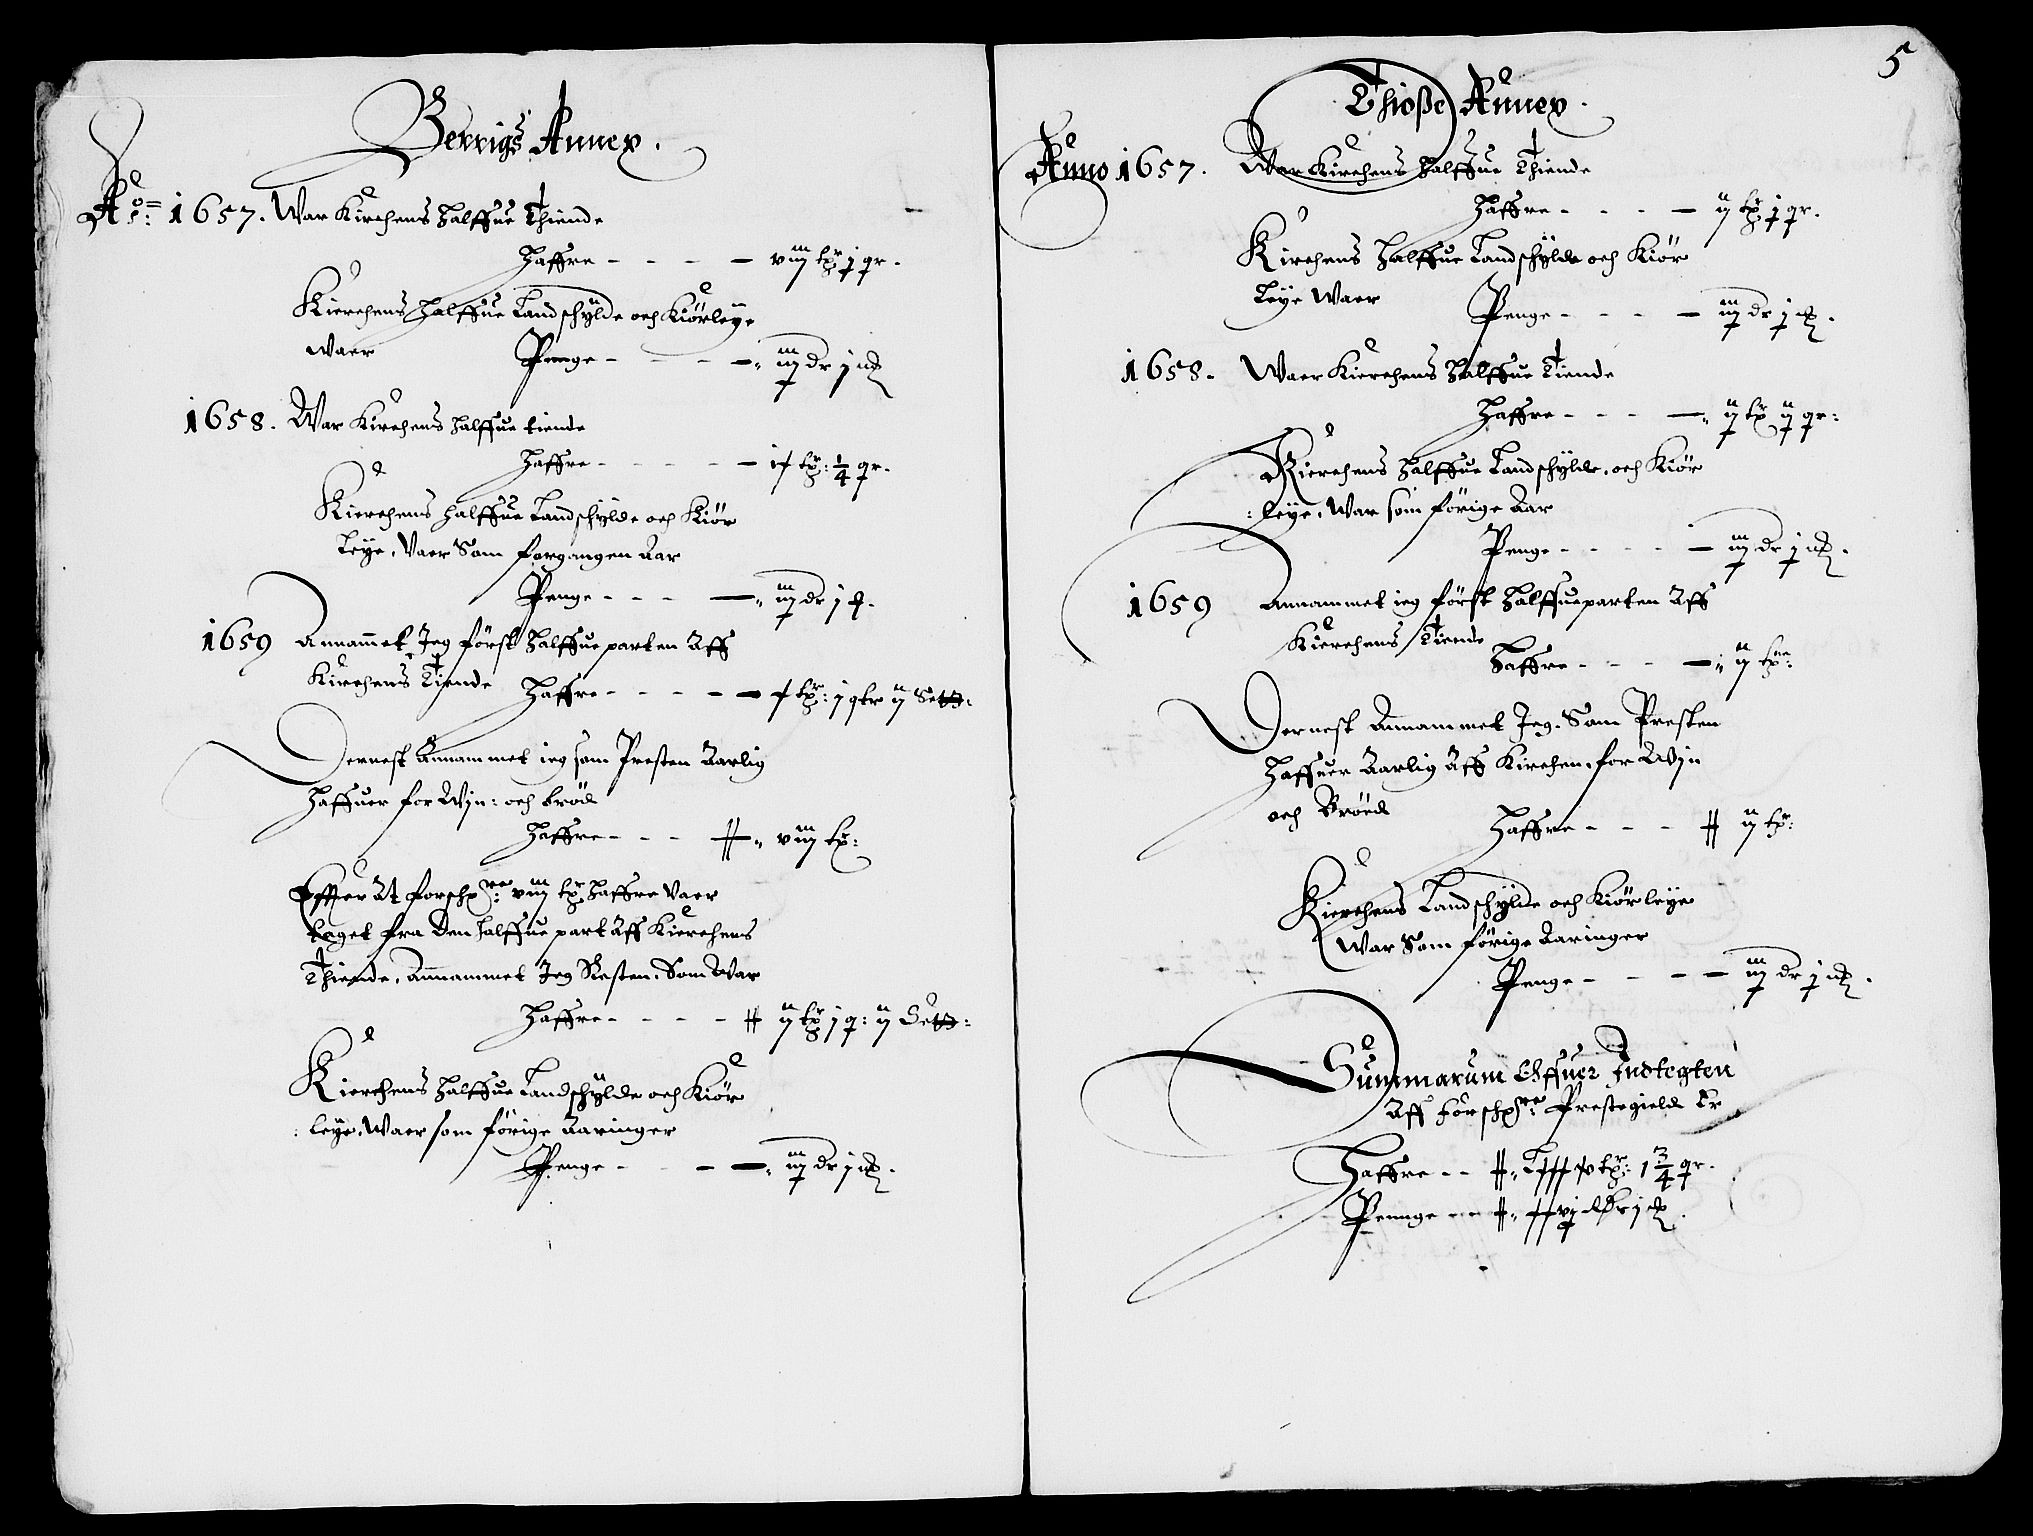 Berrigs Annex.
Ao: 1657. War Kirchens Halffue Thiende
Haffre - - - - viij tr j qr.
Kierchens Halffue Landschÿlde och Kiörleÿe
waer Penge - - - - iij dr j
1658. War Kirchens halffue tiende
Haffre - - - - - 1/4 qr.
Kierchens halffue Landschÿlde och Kiör
Leÿe, Vaer Som forgangen Aar
Penge - - - - iij dr j
1659 Annammet Jeg först Halffue parten Aff
Kirchens Tiende Haffre - - - - - j qtr ij Set:
Dernest Annammet ieg som Presten Aarlig
Haffuer for Wÿn: och bröd
Haffre - - - viij tr:
Effter At forschne: viij tr Haffre Vaer
taget fra Den halffue part Aff Kierchens
Thiende, Annammet Jeg Resten, Som War
Haffre - - - - - ij tr j q: ij Set:
Kierchens Halffue Landschÿlde och Kiör
leÿe, Waer som förige Aaringer
Penge - - - - iij dr j
5
Thioße Annex.
Anno 1657. War Kirchens Halffue Thiende
Haffre - - - - - ij tr j qr.
Kirchens Halffue Landschÿlde och Kiör
Leÿe Waer Penge - - - - - iij dr j
1658. Waer Kierchens Halffue Tiende
Haffre - - - - ij tr ij qr:
Kierchens Halffue Landschÿlde, och Kiör
: leÿe, War som förige Aar
Penge - - - - - iij dr j
1659 Annammet ieg först Halffueparten Aff
Kierchens Tiende
Haffre - - - - ij tr:
Dernest Annammet Jeg, Som Presten
Haffuer Aarlig Aff Kirchen, for Wÿn
och Bröed
Haffre - - - - ij tr:
Kierchens Landschÿlde och Kiörleÿe
War Som förige Aaringer
Penge - - - - iij dr j
Summarum Offuer Indtegten
Aff forschne: Prestegield Er
Haffre - - tr: 1 3/4 qr.
Pennge - - - dr j